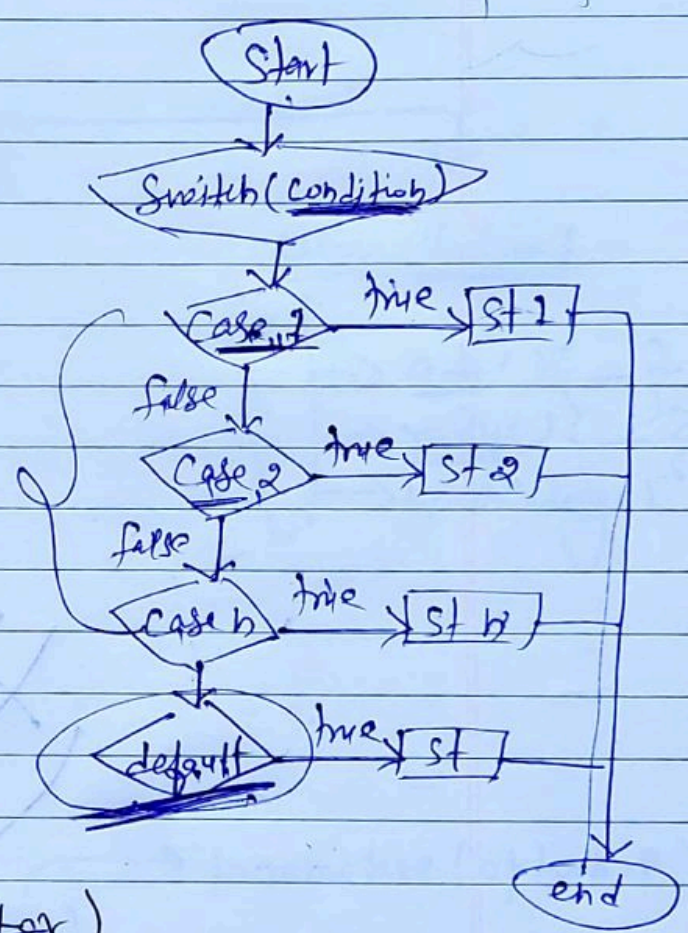 Start
Switch (condition)
Case 1 true St 1
false
Case 2 true St 2
false
Case n true St n
default true St
end